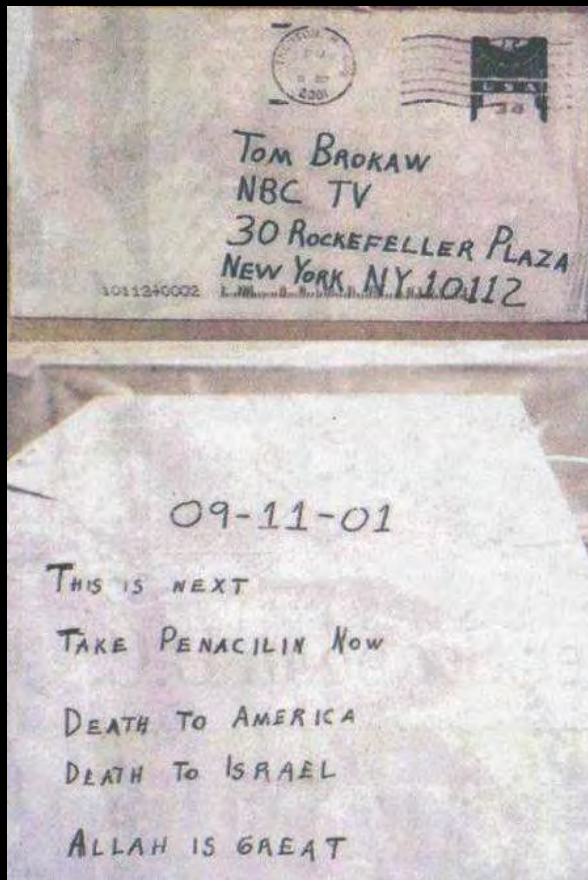 2001
USA
34
TOM BROKAW
NBC TV
30 ROCKEFELLER PLAZA
NEW YORK NY 10112
10112+0002
09-11-01
THIS IS NEXT
TAKE PENACILIN NOW
DEATH TO AMERICA
DEATH TO ISRAEL
ALLAH IS GREAT